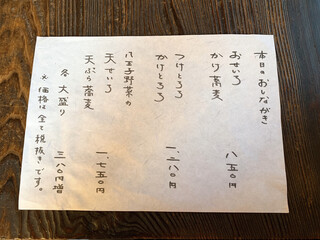 本日のおしながき
おせいろ
かけ蕎麦
八五〇円
つけとろろ
かけとろろ
一、二八〇円
八王子野菜の
天せいろ
天ぷら蕎麦
一、七五〇円
各 大盛り
三八〇円増
※価格は全て税抜きです。